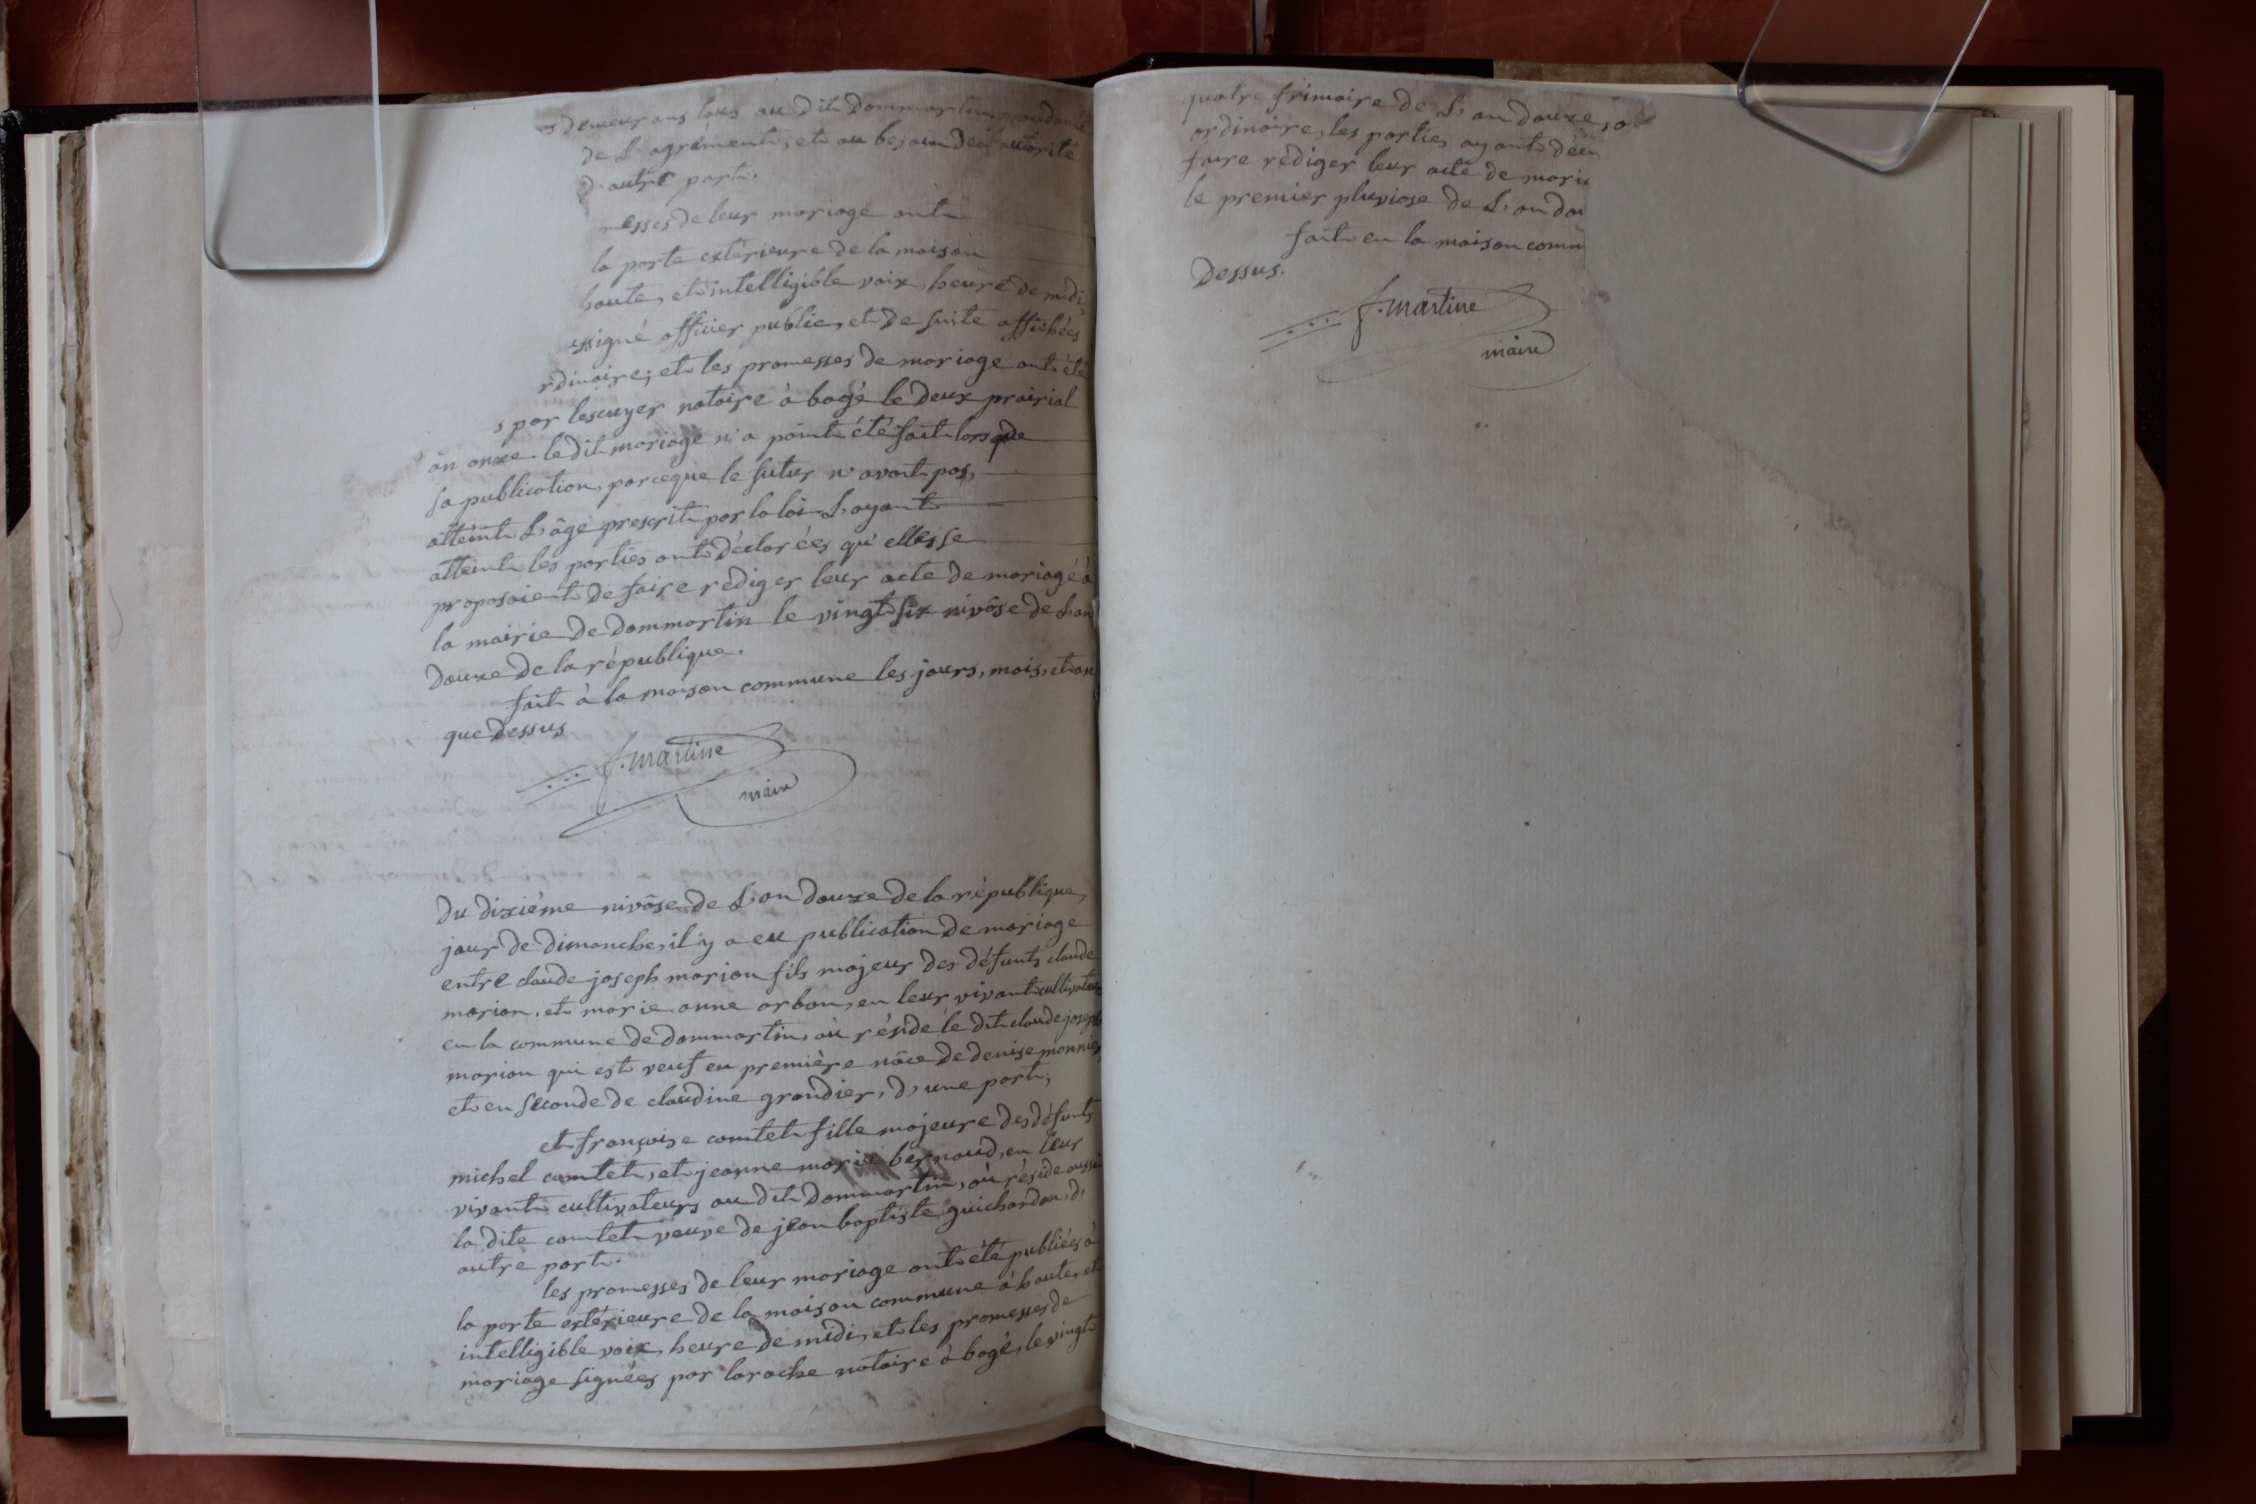 demeurans tous au dit Dommartin procedante
de L'agrément, et au besoin de L'autorité
D'autre part.
messes de leur mariage ont
la porte extérieure de la maison
haute, et intelligible voix, heure de midi,
ssigné officier public, et de suite affichées
rdinaire; et les promesses de mariage ont été
s par lescuyer notaire à bagé le deux prairial
an onze. le dit mariage n'a point été fait lors que
sa publication, parceque le futur n'avait pas,
atteint L'âge prescrit par la loi L'ayant
atteint les parties ont déclarées qu'elles se
proposoient de faire rédiger leur acte de mariage à
la mairie de dommartin le vingt six nivôse de L'an
Douze de la république.
fait à la maison commune les jours, mois, et an
que Dessus
f. Martine
maire
Du dixiéme nivôse de L'an douze de la république,
jour de dimanche, il y a eu publication de mariage
entre claude joseph marion fils majeur des défunts claude
marion, et marie anne arban, en leur vivant cultivateurs
en la commune de dommartin, où réside le dit claude joseph
marion qui est veuf en première nôce de denise monnier,
et en seconde de claudine grandier, d'une part;
et françoise comtet fille majeure des défunts
michel comtet, et jeanne marie bernoud, en leur
vivant cultivateurs au dit Dommartin, où réside aussi
la dite comtet veuve de jean baptiste guichardon, d'
autre part.
les promesses de leur mariage ont été publiées à
la porte extérieure de la maison commune à haute, et
intelligible voix, heure de midi, et les promesses de
mariage signées par laroche notaire à bagé, le vingt
quatre frimaire de L'an douze,
ordinaire, les parties ayant
faire rédiger leur acte de mari
le premier pluviose de L'an dou
fait en la maison comm
Dessus.
f. Martine
maire